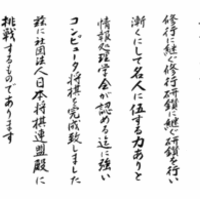 修行に継ぐ修行研鑽に継ぐ研鑽を行い
漸くにして名人に伍する力ありと
情報処理学会が認める迄に強い
コンピュータ将棋を完成致しました
茲に社団法人日本将棋連盟殿に
挑戦するものであります